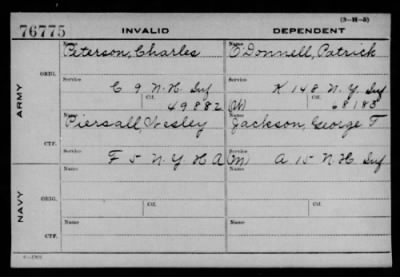 (3-M-8)
76775 INVALID DEPENDENT
Name Name
Peterson, Charles O'Donnell, Patrick
ORIG. Service Service
C 9 N.H. Inf K 148 N.Y. Inf
Ctf. Ctf.
49882 (W) 68183
ARMY
Name Name
Piersall, Wesley Jackson, George T
CTF. Service Service
F 5 N.Y. H A (M) A 15 N.H. Inf
NAVY
Name Name
ORIG. Ctf. Ctf.
Name Name
CTF.